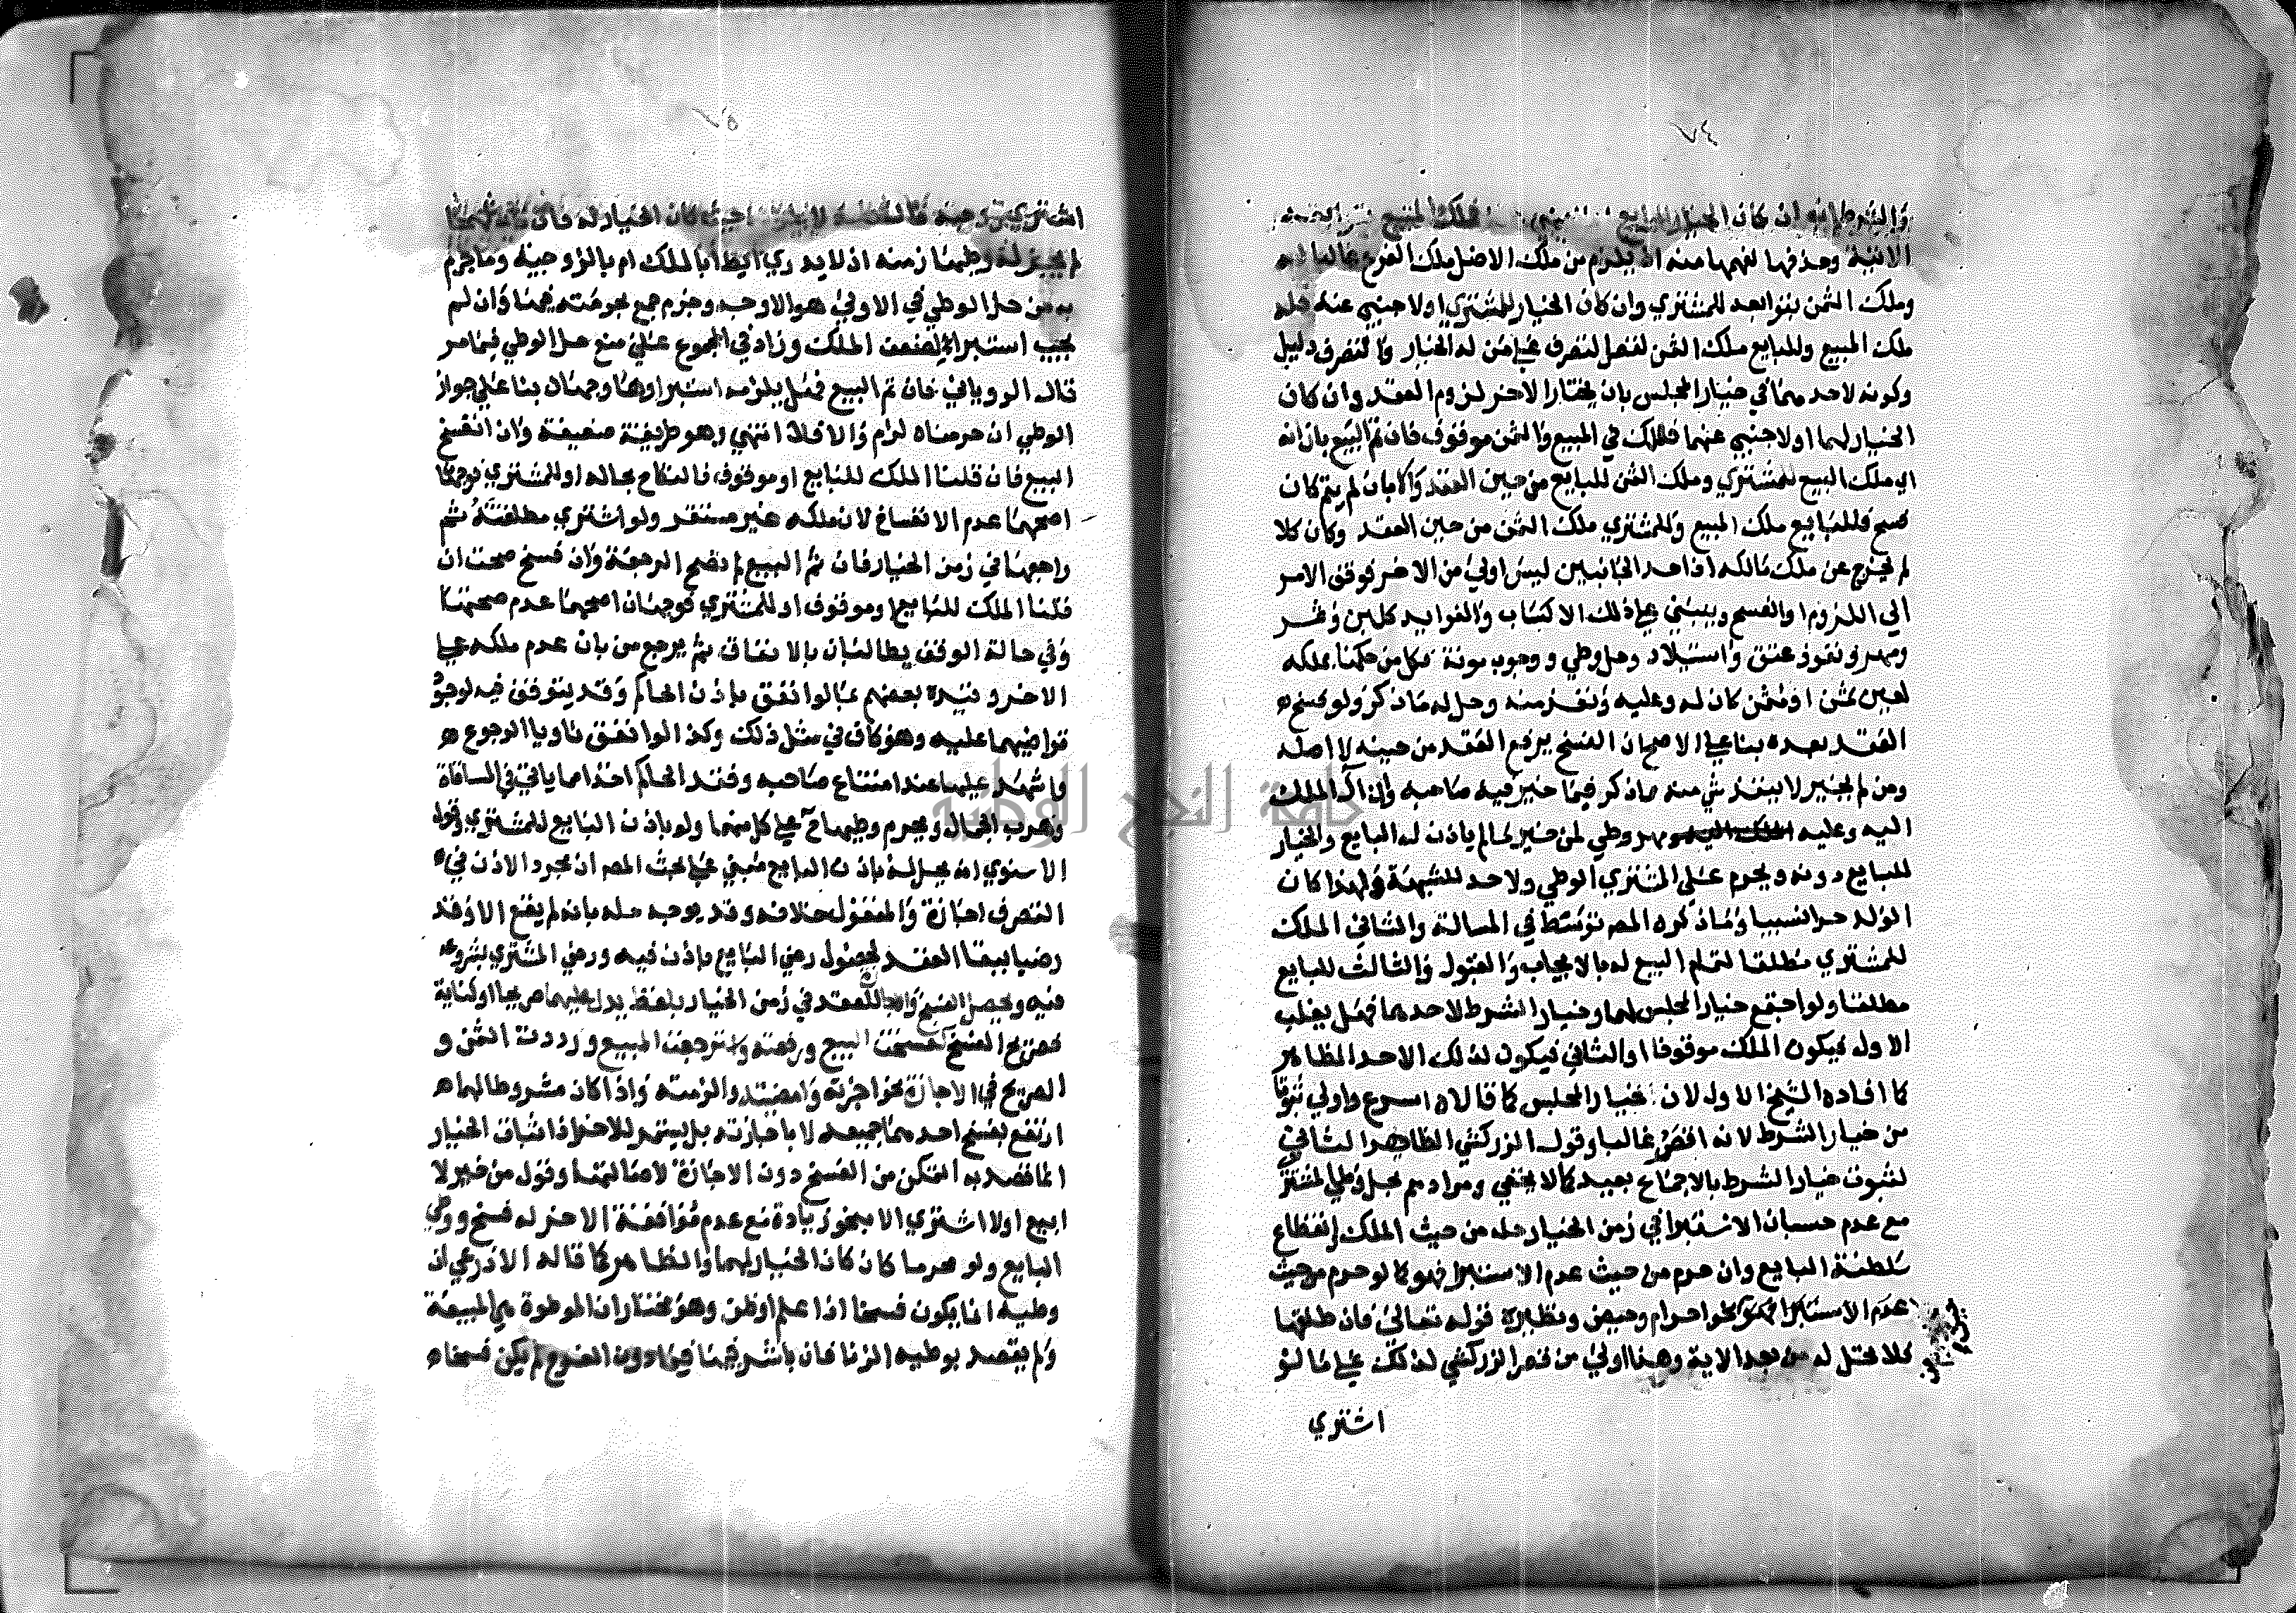 ٧٤
والشرط انه ان كان الخيار للبايع فملك المبيع بتوابعه
الاتية وحذفها لفهمها منه اذ يلزم من ملك الاصل ملك الفرع غالبا له
وملك الثمن بتوابعه للمشتري وان كان الخيار للمشتري اولاجنبي عنه فله
ملك المبيع وللبايع ملك الثمن لقصر التصرف على من له الخيار والتصرف دليل
وكونه لاحدهما في خيار المجلس بان يختار الاخر لزوم العقد وان كان
الخيار لهما اولاجنبي عنهما فالملك في المبيع والثمن موقوف فان تم البيع بان انه
اي ملك المبيع للمشتري وملك الثمن للبايع من حين العقد والا بان لم يتم كان
فسخ فللبايع ملك المبيع وللمشتري ملك الثمن من حين العقد وكان كلا
لم يخرج عن ملك مالكه اذ احد الجانبين ليس اولي من الاخر فوقف الامر
الي اللزوم او الفسخ وينبني علي ذلك الاكساب والفوايد كلبن وثمر
ومهر ونفوذ عتق واستيلاد وحل وطي ووجوب مونة فكل من حكمنا بملكه
لعين ثمن او مثمن كان له وعليه ونفذ منه وحل له ماذكر ولو فسخ
العقد بعده بناعلي الاصح ان الفسخ يرفع العقد من حينه لا اصله
ومن لم يخير لا ينفذ شي منه مماذكر فيما خير فيه صاحبه وان آل الملك
اليه وعليه مهر وطي لمن خير مالم ياذن له البايع والخيار
للبايع دونه ويحرم علي المشتري الوطي ولاحد للشبهة ولهذا كان
الولد حرا نسيبا وماذكره المص توسط في المسالة والثاني الملك
للمشتري مطلقا لتمام البيع له بالايجاب والقبول والثالث للبايع
مطلقا ولو اجتمع خيار المجلس لهما وخيار الشرط لاحدهما فهل يغلب
الاول فيكون الملك موقوفا او الثاني فيكون لذلك الاحد الظاهر
كما افاده الشيخ الاول لان خيار المجلس كما قالاه اسرع واولي ثبوتا
من خيار الشرط لانه اقصر غالبا وقول الزركشي الظاهر الثاني
لثبوت خيار الشرط بالاجماع بعيد كما لا يخفي ومرادهم بحل وطي المشتري
مع عدم حسبان الاستبرا في زمن الخيار حله من حيث الملك وانقطاع
سلطنة البايع وان حرم من حيث عدم الاستبرا فهو كما لو حرم من حيث
عدم الاستبرا فهو كنحو احرام وحيض ونظيره قوله تعالي فان طلقها
فلا تحل له من بعد الاية وهذا اولي من قصر الزركشي لذلك علي ما لو
اشتري
٧٥
اشتري زوجته حيث كان الخيار له فان
لم يجز له وطيها زمنه اذ لا يدري ايطا بالملك ام بالزوجية وماجزم
به من حل الوطي في الاولي هو الاوجه وجزم جمع بحرمته فيها وان لم
يجب استبرا لضعف الملك وزاد في المجموع علي منع حل الوطي فيما مر
قال الروياني فان تم البيع فهل يلزمه استبراوها وجهان بنا علي جواز
الوطي ان حرمناه لزم والا فلا انتهي وهو طريقة ضعيفة وان انفسخ
البيع فان قلنا الملك للبايع او موقوف فالنكاح بحاله او للمشتري فوجهان
اصحهما عدم الانفساخ لان ملكه غير مستقر ولو اشتري مطلقته ثم
راجعها في زمن الخيار فان تم البيع لم تصح الرجعة وان فسخ صحت ان
قلنا الملك للبايع او موقوف او للمشتري فوجهان اصحهما عدم صحتها
وفي حالة الوقف يطالبان بالانفاق ثم يرجع من بان عدم ملكه علي
الاخر وقيده بعضهم بما لو انفق باذن الحاكم وقد يتوقف فيه لوجود
تراضيهما عليه وهو كاف في مثل ذلك وكذا لو انفق ناويا الرجوع
واشهد عليها عند امتناع صاحبه وفقد الحاكم اخذا مما ياتي في المساقاة
وهرب الجمال ويحرم وطيها ح علي كل منهما ولو باذن البايع للمشتري وقول
الاسنوي انه يحل له باذن البايع مبني علي بحث المص ان مجرد الاذن في
التصرف اجازة والمنقول خلافه وقد يوجه حله بانه لم يقع الا وقد
رضيا ببقا العقد لحصول رضي البايع باذن فيه ورضي المشتري بشروعه
فيه ويحصل الفسخ والاجازة للعقد في زمن الخيار بلفظ يدل عليهما صريحا او كناية
فصريح الفسخ كفسخت البيع ورفعته واسترجعت المبيع ورددت الثمن و
الصريح في الاجازة نحو اجزته وامضيته والزمته واذا كان مشروطا لهما
ارتفع بفسخ احدهما جميعه لا باجازته بل يستمر للاخر اذ اثبات الخيار
انما قصد به التمكن من الفسخ دون الاجازة لاصالتها وقول من خير لا
ابيع اولا اشتري الا بنحو زيادة مع عدم موافقة الاخر له فسخ ووطي
البايع ولو محرما كان كان الخيار لهما والظاهر كما قاله الاذرعي ان
وطيه انما يكون فسخا اذا علم او ظن وهو مختار ان الموطوة هي المبيعة
ولم يقصد بوطيه الزنا فان باشر فيها فيما دون الفرج لم يكن فسخا